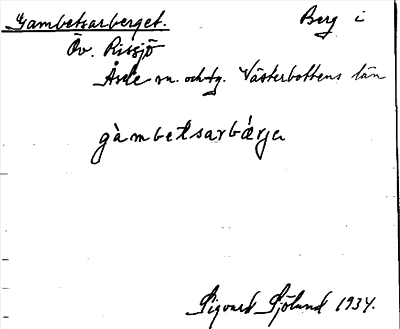 Gambetsarberget. Berg i
Öv. Rissjö
Åsele sn. och tg. Västerbottens län
gàmbetsarbǽrje
Sigvard Sjölund 1934.